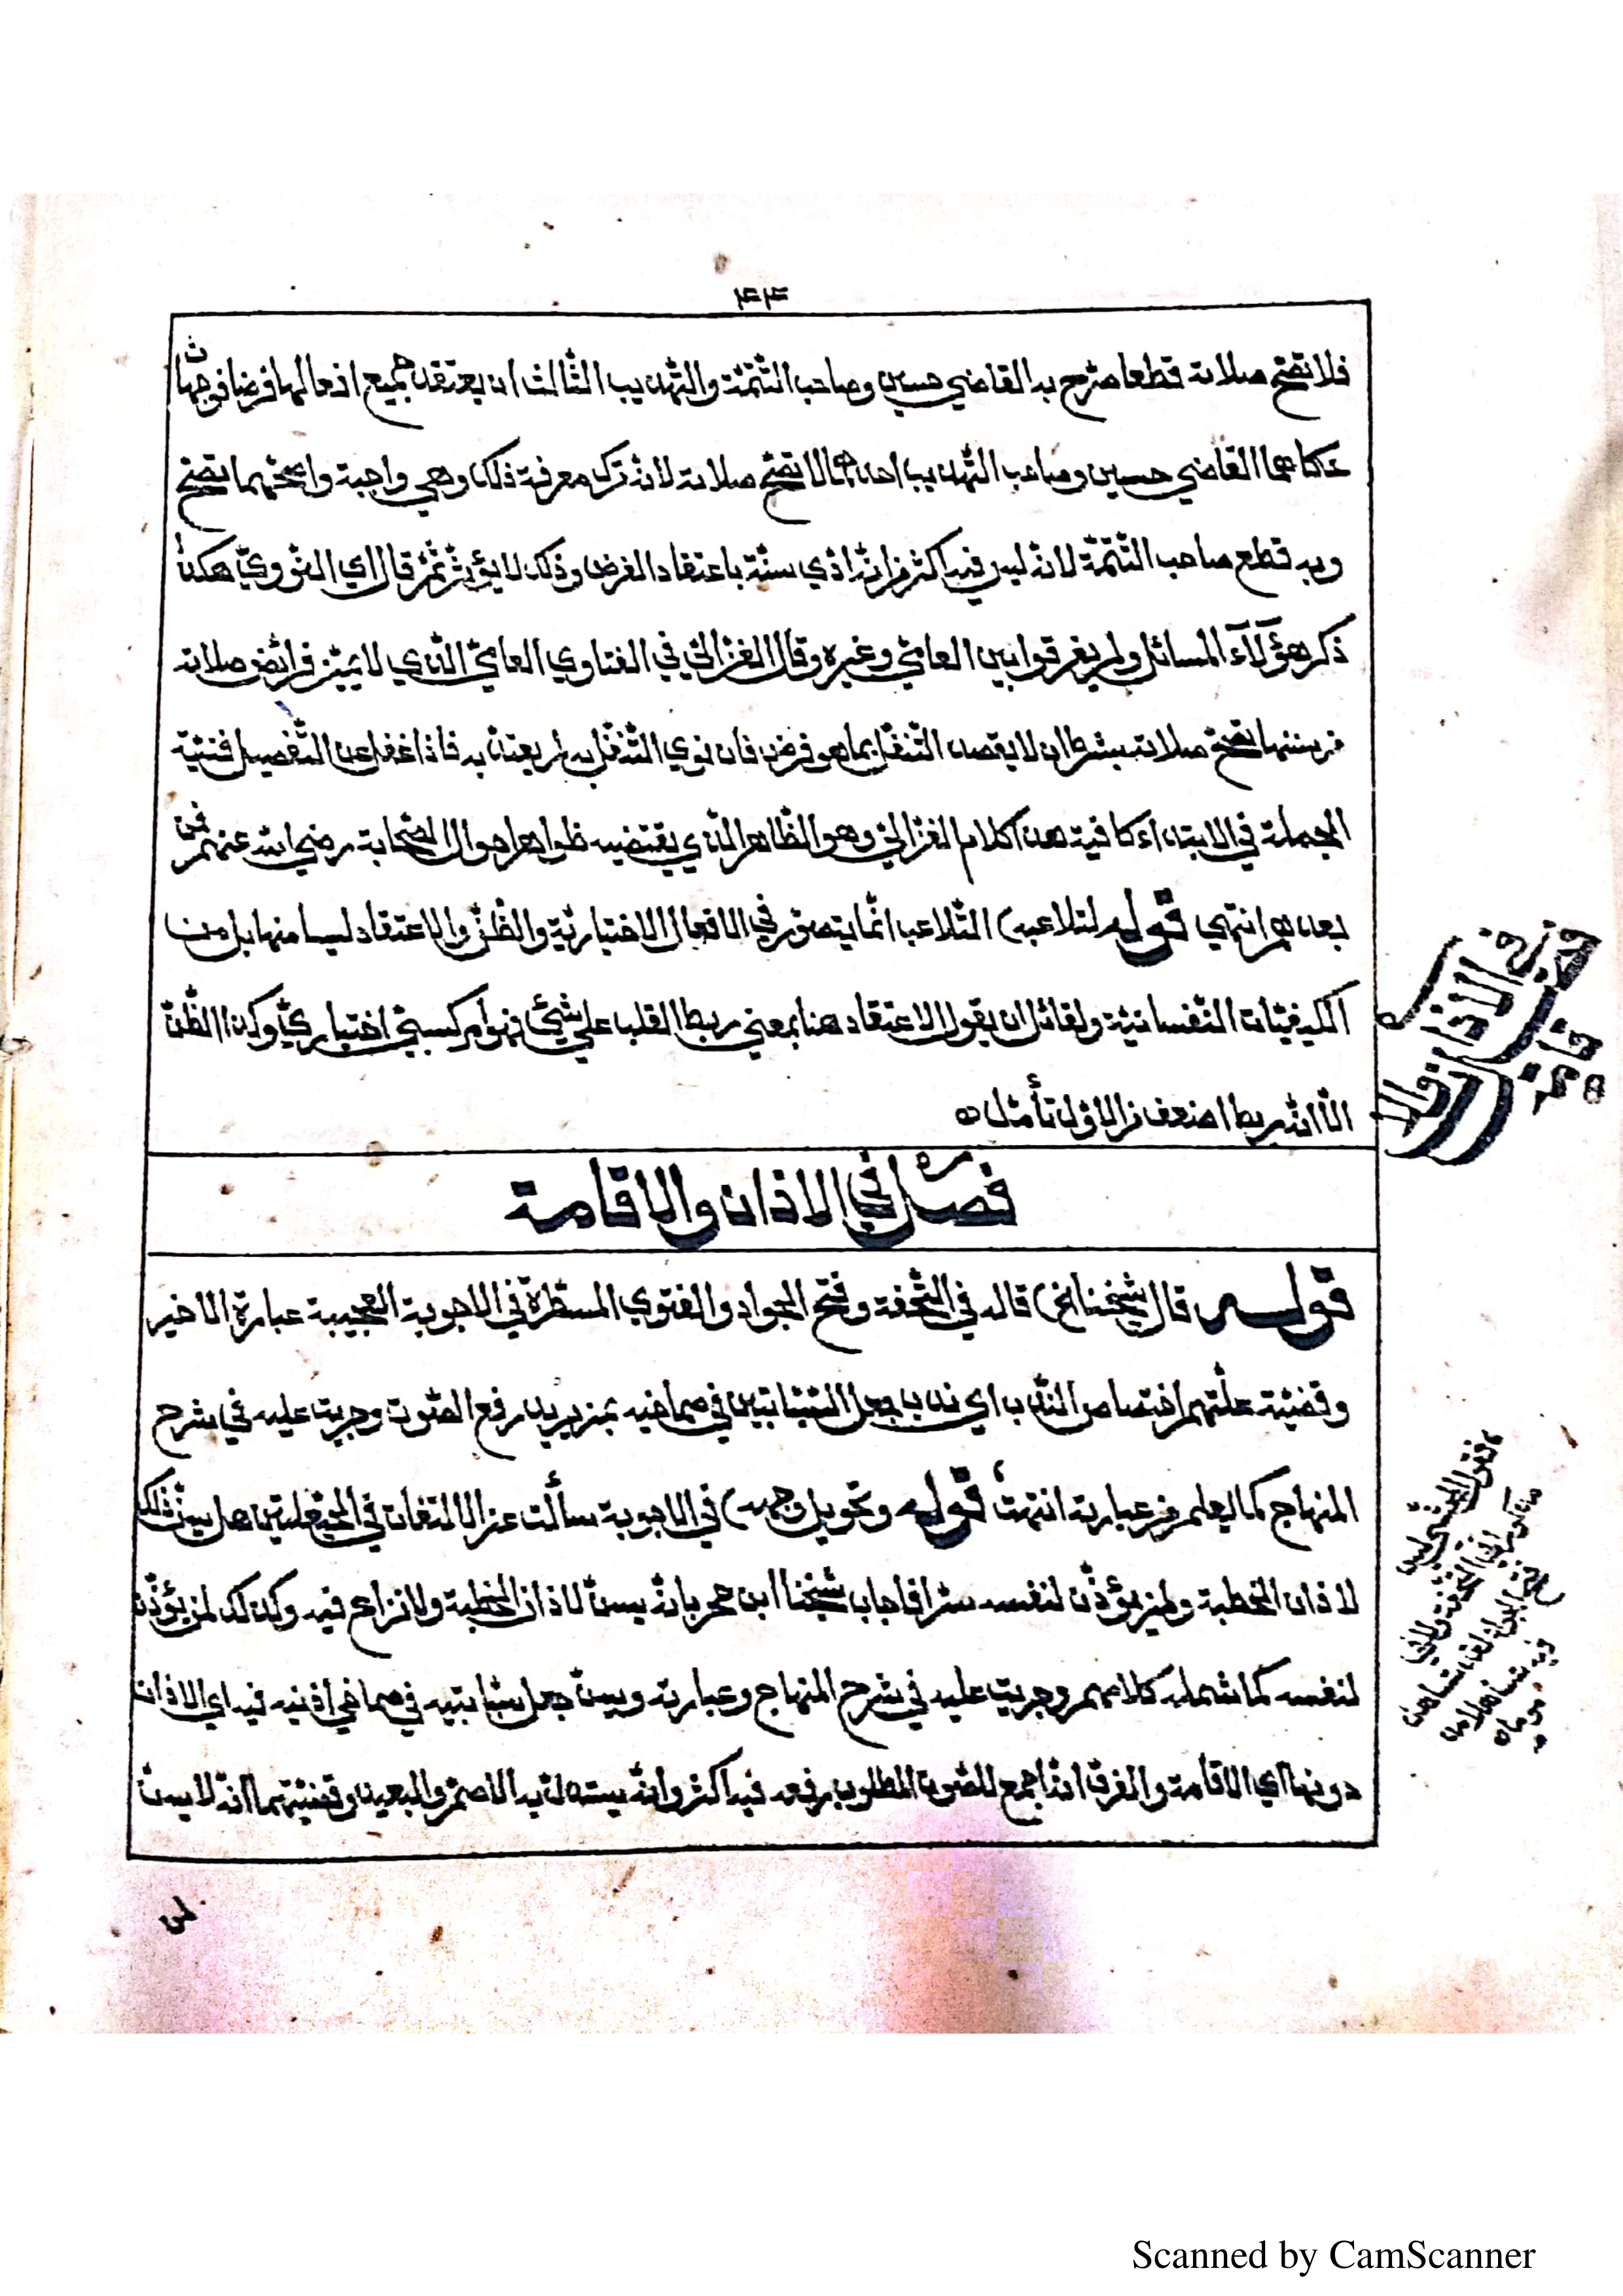 ٤٤
فلا تصحّ صلاته قطعا صرّح به القاضي حسين وصاحب التّتمّة والتّهذيب الثّالث ان يعتقد جميع افعالها فرضا فوجهان
حكاهما القاضي حسين وصاحب التّهذيب احدهما لا تصحّ صلاته لانه ترك معرفة ذلك وهي واجبة واصحّهما تصحّ
وبه قطع صاحب التّتمّة لانه ليس فيه اكثر من انّه ادّي سنّة باعتقاد الفرض وذلك لا يؤثّر ثمّ قال اي النّوويّ هكذا
ذكر هؤلآء المسائل ولم يفرقوا بين العاميّ وغيره وقال الغزاليّ في الفتاوي العاميّ الّذي لا يميّز فرائض صلاته
من سننها تصحّ صلاته بشرط ان لا يقصد التّنفّل بما هو فرض فان نوي التّنفّل به لم يعتدّ به فاذا غفل عن التّفصيل فنيّة
الجملة في الابتداء كافية هذا كلام الغزاليّ وهو الظّاهر الّذي يقتضيه ظواهر احوال الصّحابة رضي الله عنهم فمن
بعدهم انتهي قوله لتلاعبه) التّلاعب انّما يتصوّر في الافعال الاختياريّة والظّنّ والاعتقاد ليسا منها بل من
الكيفيّات النّفسانيّة ولقائل ان يقول الاعتقاد هنا بمعني ربط القلب علي شيّ فهو امر كسبيّ اختياريّ وكذا الظّنّ
الّا انّه ربط اضعف من الاوّل تأمّل ه
فصل في الاذان والاقامة
قوله قال شيخنا الخ) قاله في التّحفة وفتح الجواد والفتوي المسطّرة في الاجوبة العجيبة عبارة الاخير
وقضيّة علّتهم اختصاص النّدب اي ندب جعل السّبّابتين في صماخيه بمن يريد رفع الصّوت وجريت عليه في شرح
المنهاج كما يعلم من عبارته انتهت قوله وتحويل وجهه) في الاجوبة سألت عن الالتفات في الحيعلتين هل يسنّ ذلك
لاذان الخطبة ولمن يؤذّن لنفسه سرّا فاجاب شيخنا ابن حجر بانّه يسنّ لاذان الخطبة ولا نزاع فيه وكذلك لمن يؤذّن
لنفسه كما شمله كلامهم وجريت عليه في شرح المنهاج وعبارته ويسنّ جعل سبّابتيه في صماخي اذنيه فيه اي الاذان
دونها اي الاقامة والفرق انّه اجمع للصّوت المطلوب رفعه فيه اكثر وانّه يستدلّ به الاصمّ والبعيد وقضيّتهما انّه لا يسنّ
لمن
Scanned by CamScanner